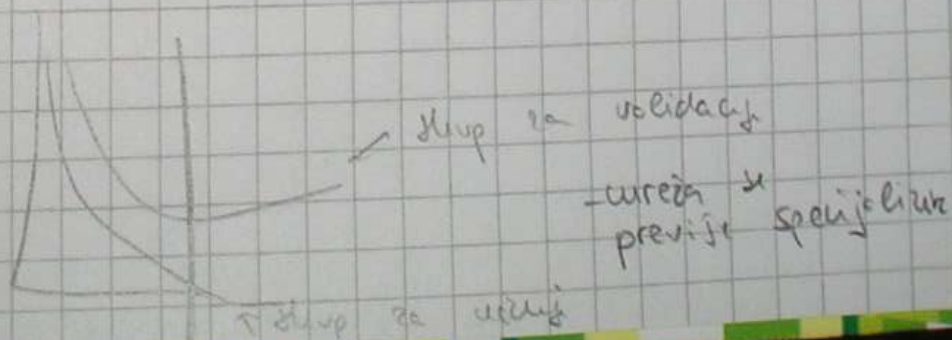 skup za validaciju
- mreža se
previše specijalizir
skup za učenj